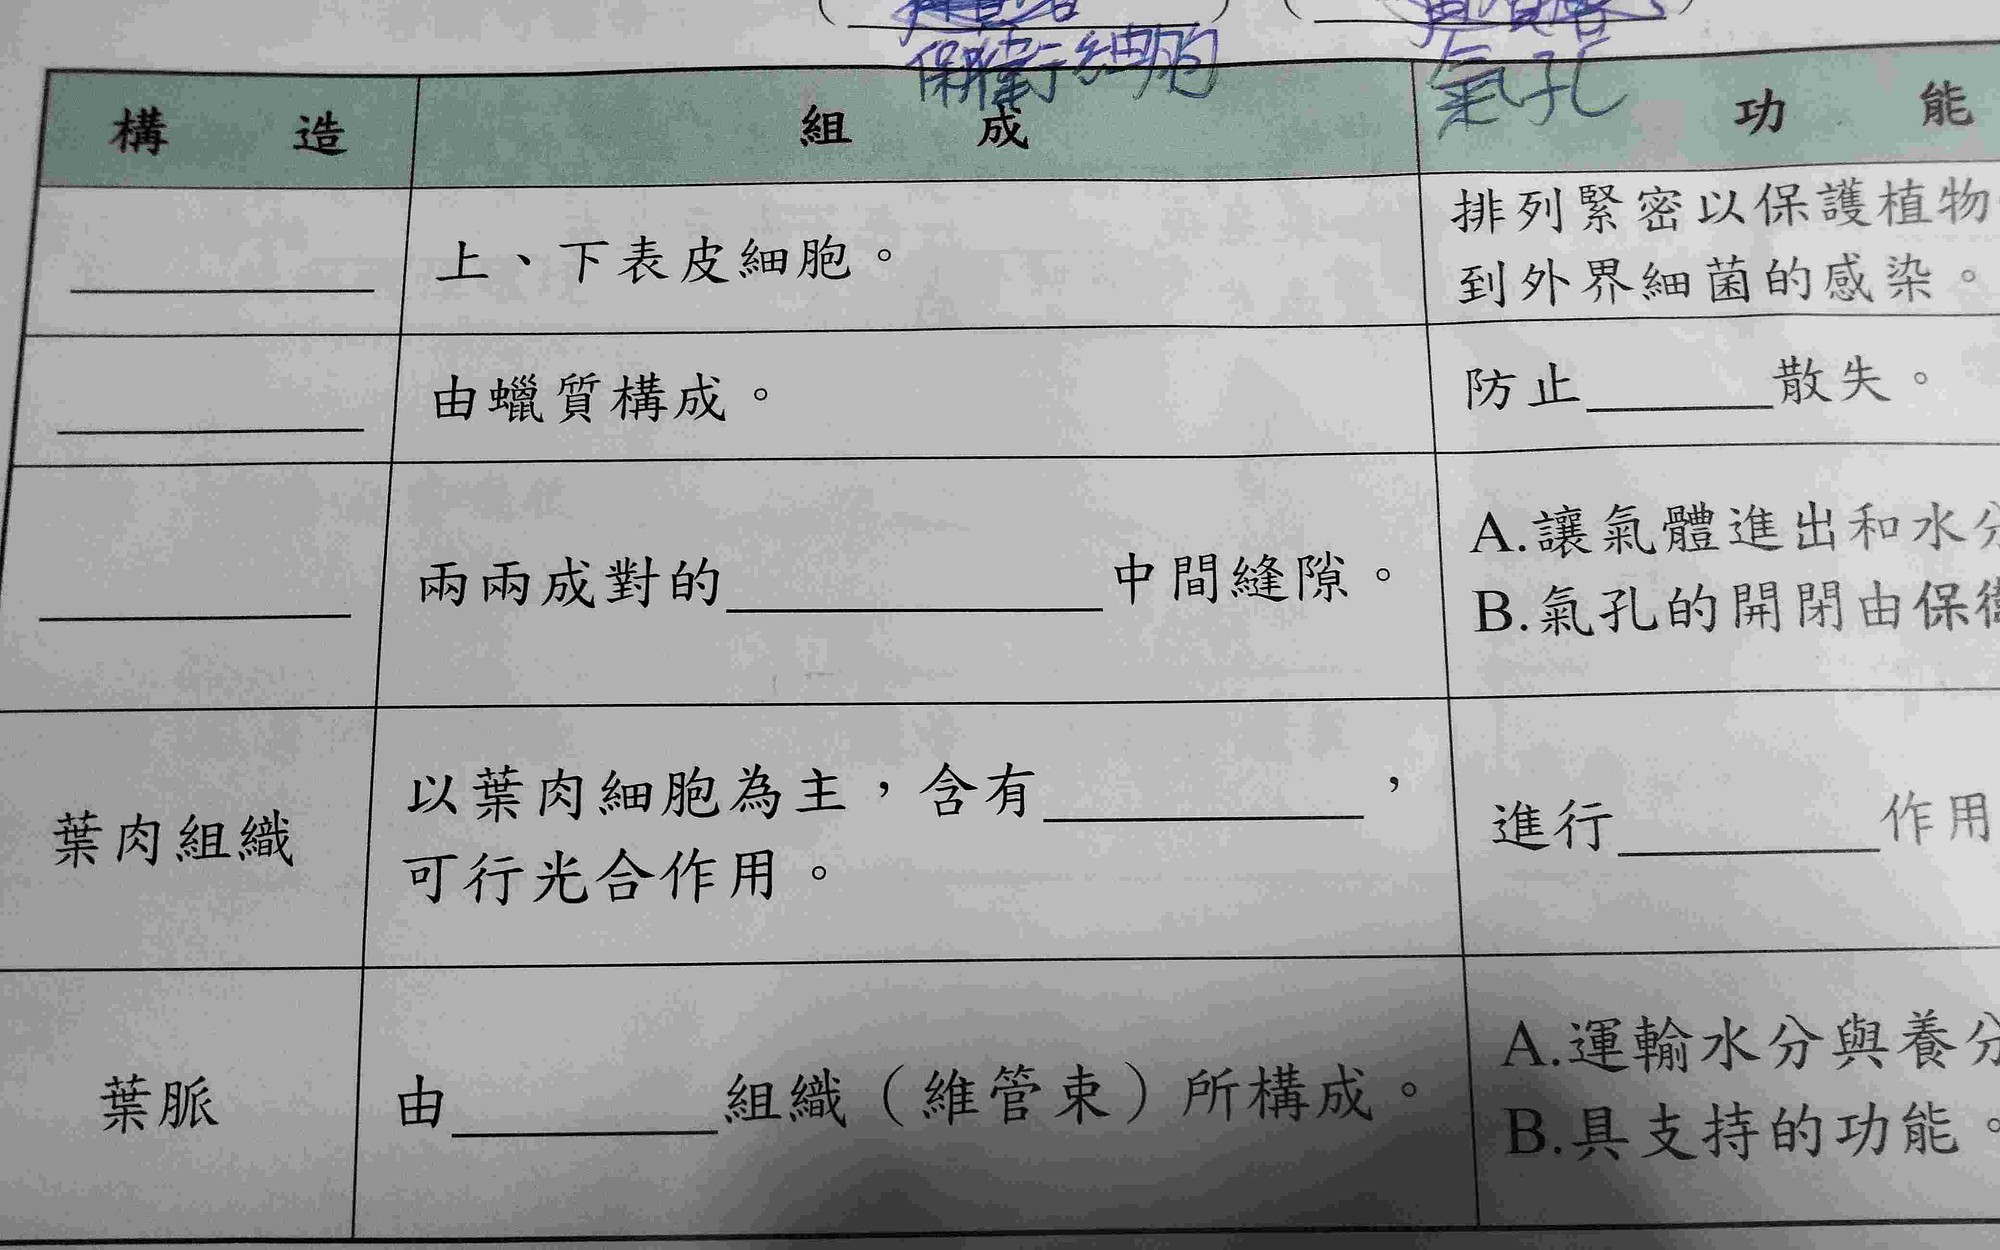 保衛細胞 氣孔
構造 組成 功能
上、下表皮細胞。 排列緊密以保護植物
到外界細菌的感染。
由蠟質構成。 防止______散失。
兩兩成對的______中間縫隙。 A.讓氣體進出和水分
B.氣孔的開閉由保衛
葉肉組織 以葉肉細胞為主，含有______， 進行______作用
可行光合作用。
葉脈 由______組織（維管束）所構成。 A.運輸水分與養分
B.具支持的功能。